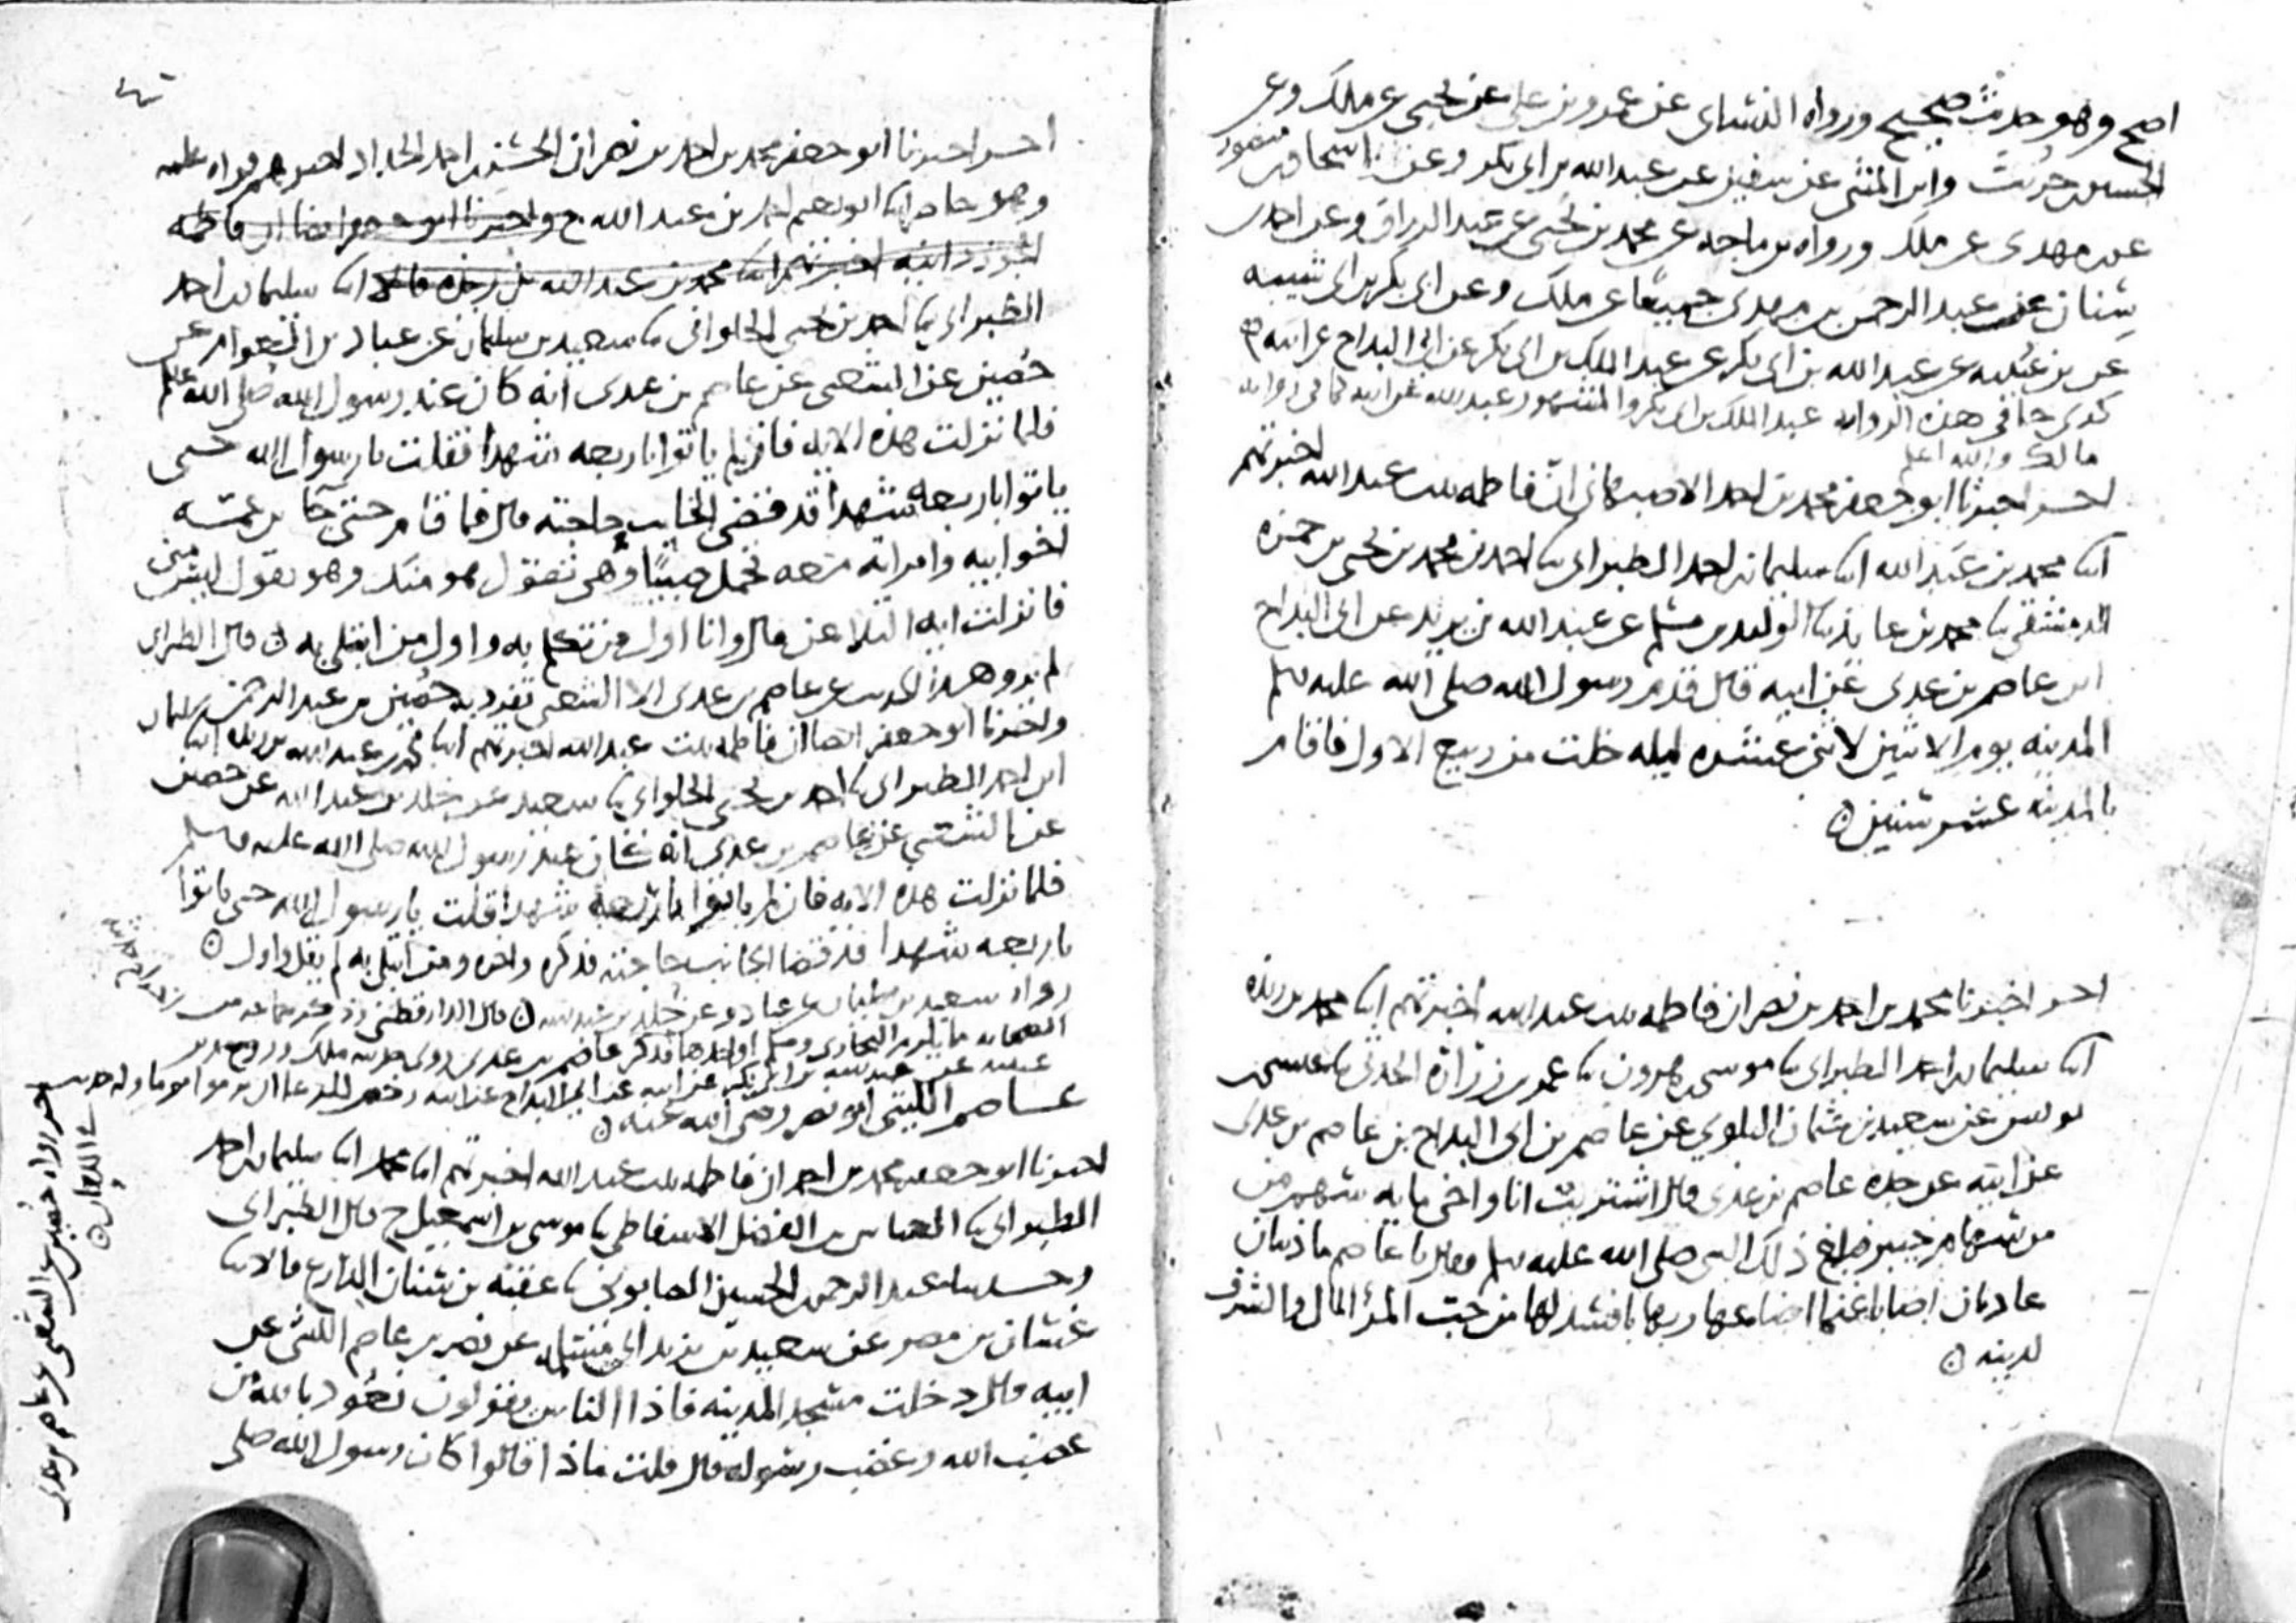 اصح وهو حديث صحيح ورواه النسائي عن عمرو بن علي عن يحيى عن ملك وعن
الحسين حريث وابن المثنى عن سفين عن عبد الله بن ابي بكر وعن اسحاق بن منصور
عن مهدي عن ملك ورواه بن ماجه عن محمد بن يحيى عن عبد الرزاق وعن احمد بن
سنان عن عبد الرحمن بن مهدي جميعا عن ملك وعن ابي بكر بن ابي شيبه
عن بن عيينه عن عبد الله بن ابي بكر عن عبد الملك بن ابي بكر عن ابي البداح عن ابيه
كدى جا في هذه الروايه عبد الملك بن ابي بكر والمشهور عبد الله عن ابيه كما في روايه
مالك والله اعلم
اخبرنا ابو جعفر محمد بن احمد الاصبهاني ان فاطمه بنت عبد الله اخبرتهم
ابنا محمد بن عبد الله ابنا سليمان بن احمد الطبراني ثنا احمد بن محمد بن يحيى بن حمزه
الدمشقي ثنا محمد بن عايذ ثنا الوليد بن مسلم عن عبد الله بن يزيد عن ابي البداح
ابن عاصم بن عدي عن ابيه قال قدم رسول الله صلى الله عليه وسلم
المدينه يوم الاثنين لاثنتي عشره ليله خلت من ربيع الاول فاقام
بالمدينه عشر سنين
اخبرنا محمد بن احمد بن نصر ان فاطمه بنت عبد الله اخبرتهم ابنا محمد بن ريذه
ابنا سليمان بن احمد الطبراني ثنا موسى بن هرون ثنا عمرو بن زراره الحدثي ثنا عيسى بن
يونس عن سعيد بن عثمان البلوي عن عاصم بن ابي البداح بن عاصم بن عدي
عن ابيه عن جده عاصم بن عدي قال اشتريت انا واخي مايه سهم من
من سهام خيبر فبلغ ذلك النبي صلى الله عليه وسلم فقال يا عاصم ما ذيبان
عاديان اصابا غنما اضاعها ربها بافسد لها من حب المرا المال والشرف
لدينه
اخبرنا ابو جعفر محمد بن احمد بن نصر ان الحسن بن احمد الحداد اخبرهم قراه عليه
وهو حاضر ابنا ابو نعيم احمد بن عبد الله ح واخبرنا ابو جعفر ايضا ان فاطمه
الجوزدانيه اخبرتهم ابنا محمد بن عبد الله بن ريذه قالا ابنا سليمان بن احمد
الطبراني ثنا احمد بن يحيى الحلواني ثنا سعيد بن سليمان عن عباد بن العوام عن
حصين عن الشعبي عن عاصم بن عدي انه كان عند رسول الله صلى الله عليه
فلما نزلت هذه الايه فان لم ياتوا باربعه شهدا فقلت يا رسول الله حتى
ياتوا باربعه شهدا قد قضى الخايب حاجته قال فما قام حتى جا بن عمه
اخو ابيه وامراته معه تحمل صبيا وهي تقول هو منك وهو يقول ليس مني
فانزلت ايه اللعان قال وانا اول من تكلم به واول من ابتلي به قال الطبراني
لم يرو هذا الحديث عن عاصم بن عدي الا الشعبي تفرد به حصين بن عبد الرحمن
واخبرنا ابو جعفر ايضا ان فاطمه بنت عبد الله اخبرتهم ابنا محمد بن عبد الله بن ريذه ابنا سليمان
ابن احمد الطبراني ثنا احمد بن يحيى الحلواني ثنا سعيد عن خلد بن عبد الله عن حصين
عن الشعبي عن عاصم بن عدي انه كان عند رسول الله صلى الله عليه وسلم
فلما نزلت هذه الايه فان لم ياتوا باربعه شهدا قلت يا رسول الله حتى ياتوا
باربعه شهدا قد قضا الخايب حاجته فذكره واخره ومن ابتلي به لم يقل واول
رواه سعيد بن سليمان عن عباد وعن خلد بن عبد الله قال الدارقطني
عاصم الليثي ابو نصر رضي الله عنه
اخبرنا ابو جعفر محمد بن احمد ان فاطمه بنت عبد الله اخبرتهم ابنا محمد ابنا سليمان بن احمد
الطبراني ثنا العباس بن الفضل الاسفاطي ثنا موسى بن اسمعيل ح قال الطبراني
وحدثنا عبد الرحمن بن الحسين الصابوني ثنا عقبه بن سنان الذارع قالا ثنا
غسان بن مضر عن سعيد بن يزيد ابي مسلمه عن نصر بن عاصم الليثي عن
ابيه قال دخلت مسجد المدينه فاذا الناس يقولون نعوذ بالله من
غضب الله وغضب رسوله قال قلت ماذا قالوا كان رسول الله صلى